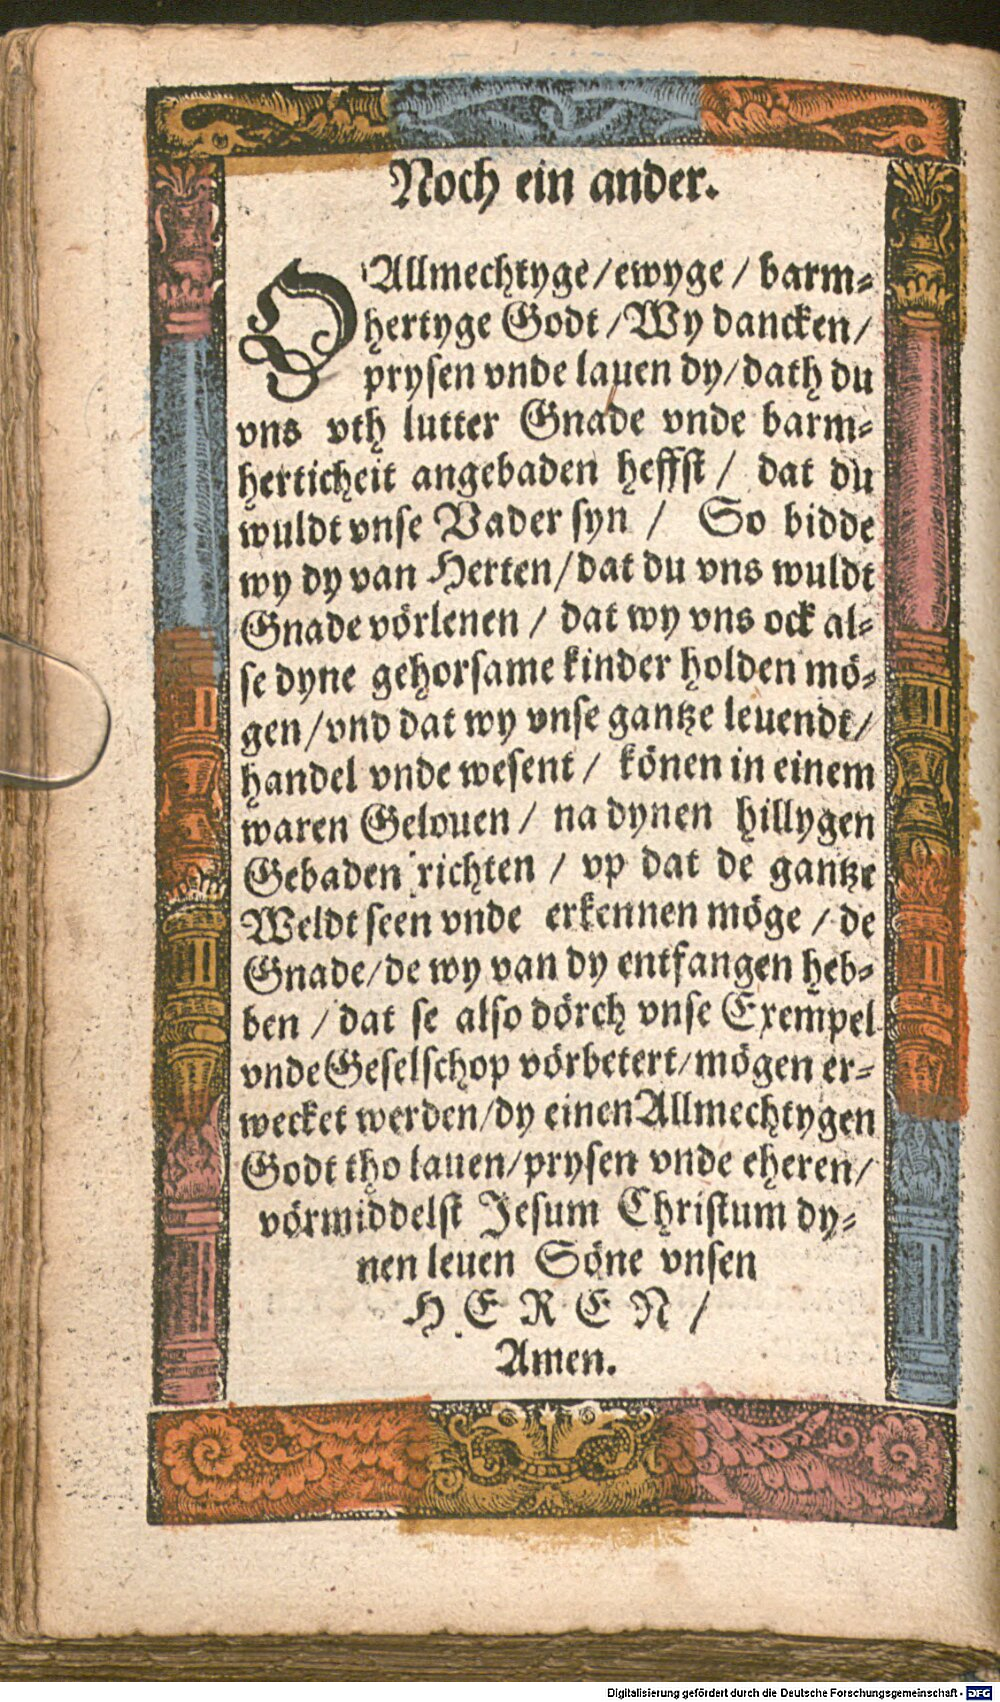 Noch ein ander.
O Allmechtyge / ewyge / barm⸗
hertyge Godt / Wy dancken /
prysen vnde lauen dy / dath du
vns vth lutter Gnade vnde barm⸗
herticheit angebaden heffst / dat du
wuldt vnse Vader syn / So bidde
wy dy van Herten / dat du vns wuldt
Gnade vörlenen / dat wy vns ock al⸗
se dyne gehorsame kinder holden mö⸗
gen / vnd dat wy vnse gantze leuendt /
handel vnde wesent / könen in einem
waren Gelouen / na dynen hillygen
Gebaden richten / vp dat de gantze
Weldt seen vnde erkennen möge / de
Gnade / de wy van dy entfangen heb⸗
ben / dat se also dörch vnse Exempel
vnde Geselschop vörbetert / mögen er⸗
wecket werden / dy einen Allmechtygen
Godt tho lauen / prysen vnde eheren /
vörmiddelst Jesum Christum dy⸗
nen leuen Söne vnsen
HEREN /
Amen.
Digitalisierung gefördert durch die Deutsche Forschungsgemeinschaft - DFG